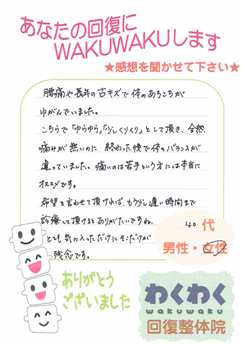 あなたの回復に
WAKUWAKUします
★感想を聞かせて下さい★
腰痛や長年の古キズで体のあちこちが
ゆがんでいました。
こちらで「ゆらゆら。「らしくりくり」として頂き、全然
痛みが無いのに 終わった後で体のバランスが
違っていました。痛いのは苦手という方には本当に
オススメです。
希望を言わせて頂ければ、もう少し遅い時間まで
診療して頂けるとありがたいですね。
とても気に入っただけにそこだけが
残念です。
40代
男性・女性
ありがとう
ございました
わくわく
wakuwaku
回復整体院